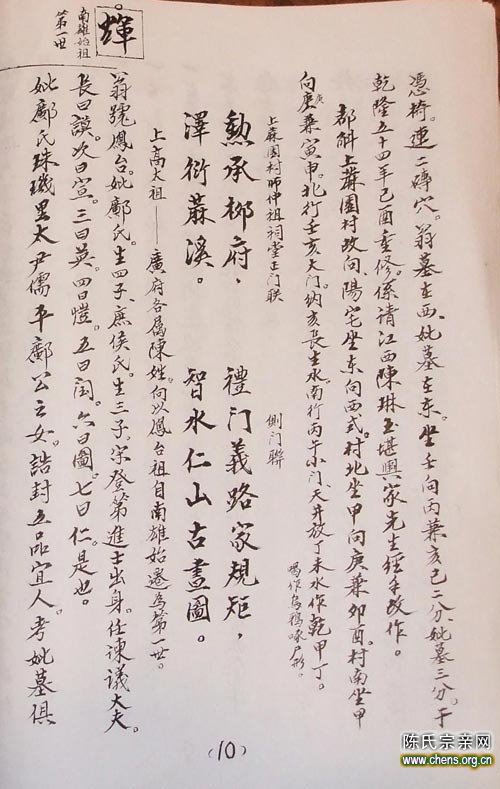 憑椅。連二磚穴。翁墓在西。妣墓在东。坐壬向丙兼亥巳二分、妣墓三分。于
乾隆五十四年己酉重修。係请江西陳琳玉堪輿家先生經手改作。
郡斛上蔴園村改向陽宅坐东向西式。村北坐甲向庚兼卯酉。村南坐甲
向庚兼寅申。北行壬亥大门。纳亥長生水。南行丙午小门、天井放丁未水作乾甲丁。
喝作烏鴉啄尸形。
上蔴園村師仲祖祠堂正门联
側门聯
勲承柳府，
禮门義路家規矩，
澤衍蔴溪。
智水仁山古畫圖。
上高大祖——廣府各属陳姓。向以鳳台祖自南雄始遷為第一世。
輝
南雄始祖
第一世
翁號鳳台。妣鄺氏。生四子、庶侯氏。生三子。宋登第進士出身。任諫議大夫。
長曰謨。次曰宣。三曰英。四曰愷。五曰闰。六曰圖。七曰仁。是也。
妣鄺氏珠璣里太尹儒平鄺公之女。誥封五品宜人。考妣墓俱
(10)
陈氏宗亲网
www.chens.org.cn